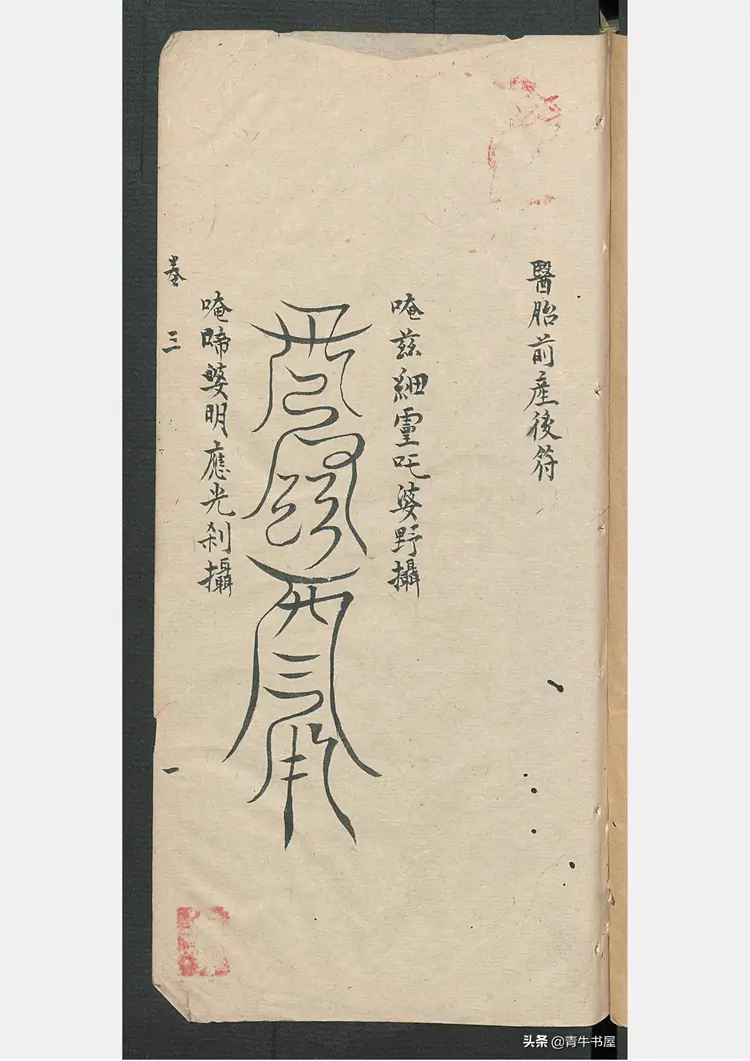 醫胎前產後符
唵茲細靈吒婆野攝
唵啼婆明應光刹攝
卷三
一
头条 @青牛书屋